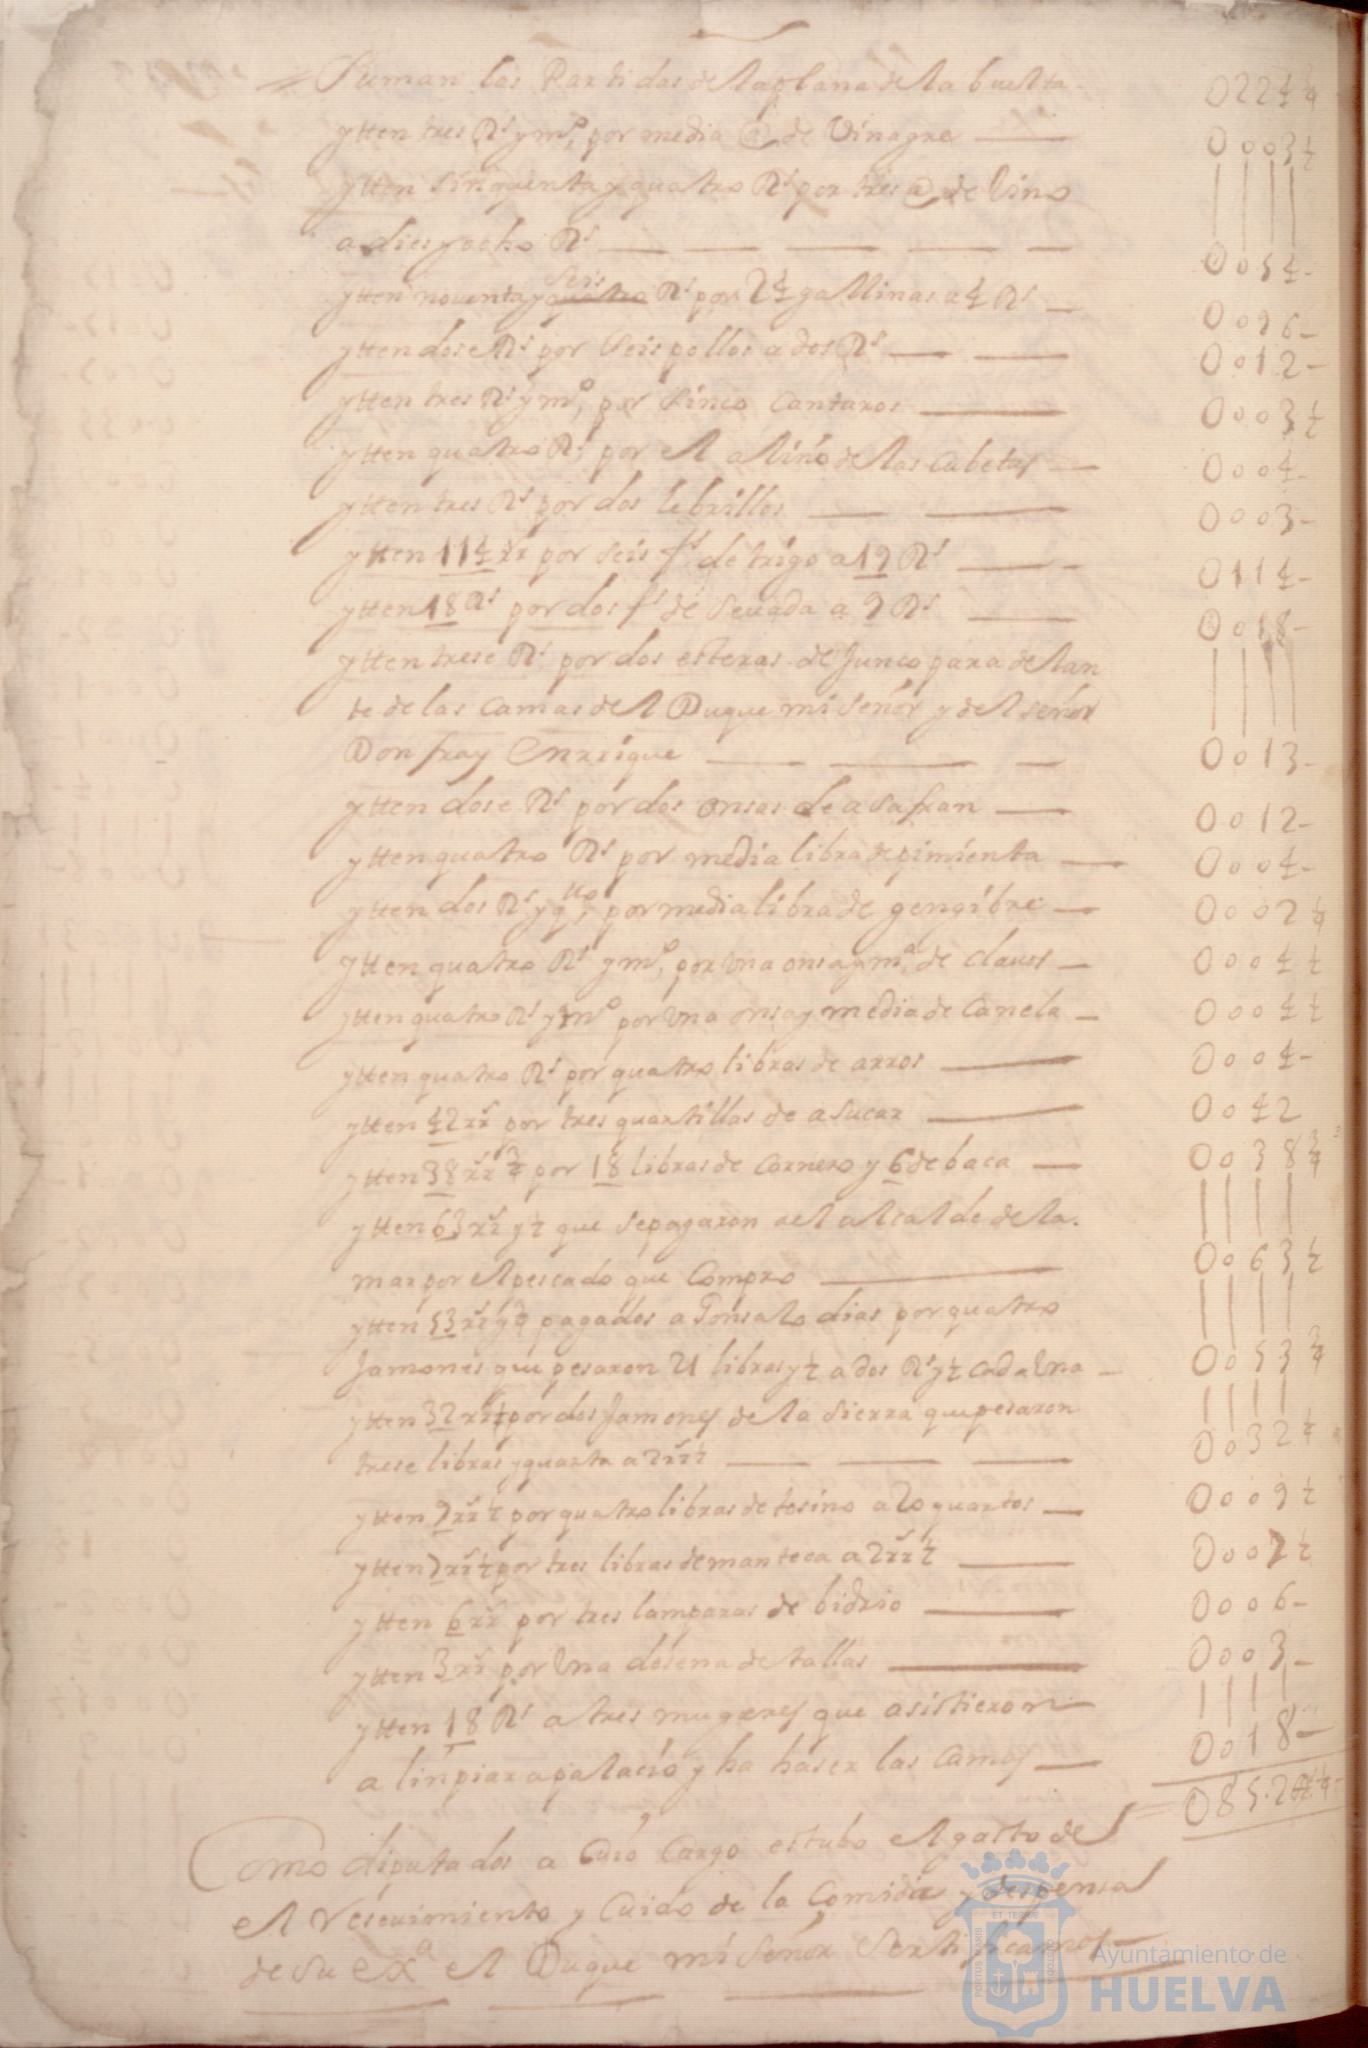 Suman las Partidas de la plana de la buelta 0224 3/4
ytten tres Rs y mo, por media @ de Vinagre 0003 1/2
ytten sinquenta y quatro Rs por tres @ de bino
a dies y ocho Rs 0054
ytten noventa y quatro seis Rs por 24 gallinas a 4 Rs 0096
ytten dose Rs por seis pollos a dos Rs 0012
ytten tres Rs y mo, por sinco Cantaros 0003 1/2
ytten quatro Rs por el aliño de las cubetas 0004
ytten tres Rs por dos lebrillos 0003
ytten 114 rr por seis fs de trigo a 19 Rs 0114
ytten 18 Rs por dos fs de sevada a 9 Rs 0018
ytten trese Rs por dos esteras de Junco para delan
te de las camas del Duque mi señor y del señor
Don fray Enrrique 0013
ytten dose Rs por dos onsas de asafran 0012
ytten quatro Rs por media libra de pimienta 0004
ytten dos Rs y qto, por media libra de gengibre 0002 1/4
ytten quatro Rs y mo, por una onsa y ma de clavos 0004 1/2
ytten quatro Rs y mo por una onsa y media de Canela 0004 1/2
ytten quatro Rs por quatro libras de arros 0004
ytten 42 rrs por tres quartillas de asucar 0042
ytten 38 rrs 3/4 por 18 libras de Carnero y 6 de baca 0038 3/4
ytten 63 rrs y 1/2 que se pagaron a el alcalde de la
mar por el pescado que Compro 0063 1/2
ytten 53 rrs y 3/4 pagados a Gonsalo dias por quatro
Jamones que pesaron 21 libras y 1/2 a dos Rs y 1/2 cada una 0053 3/4
ytten 32 rrs por dos Jamones de la sierra que pesaron
trese libras y quarta a 2 rrs 1/2 0032
ytten 9 rrs 1/2 por quatro libras de tosino a 20 quartos 0009 1/2
ytten 7 rrs 1/2 por tres libras de manteca a 2 rrs 1/2 0007 1/2
ytten 6 rrs por tres lamparas de bidrio 0006
ytten 3 rrs por una dosena de tallas 0003
ytten 18 Rs a tres mugeres que asistieron
a linpiar a palacio y ha haser las Camas 0018
0852
Como diputados a Cuio Cargo estubo el gasto de
el resevimiento y Cuido de la Comida y despensa
de su Exa el Duque mi señor sertificamos
Ayuntamiento de
HUELVA